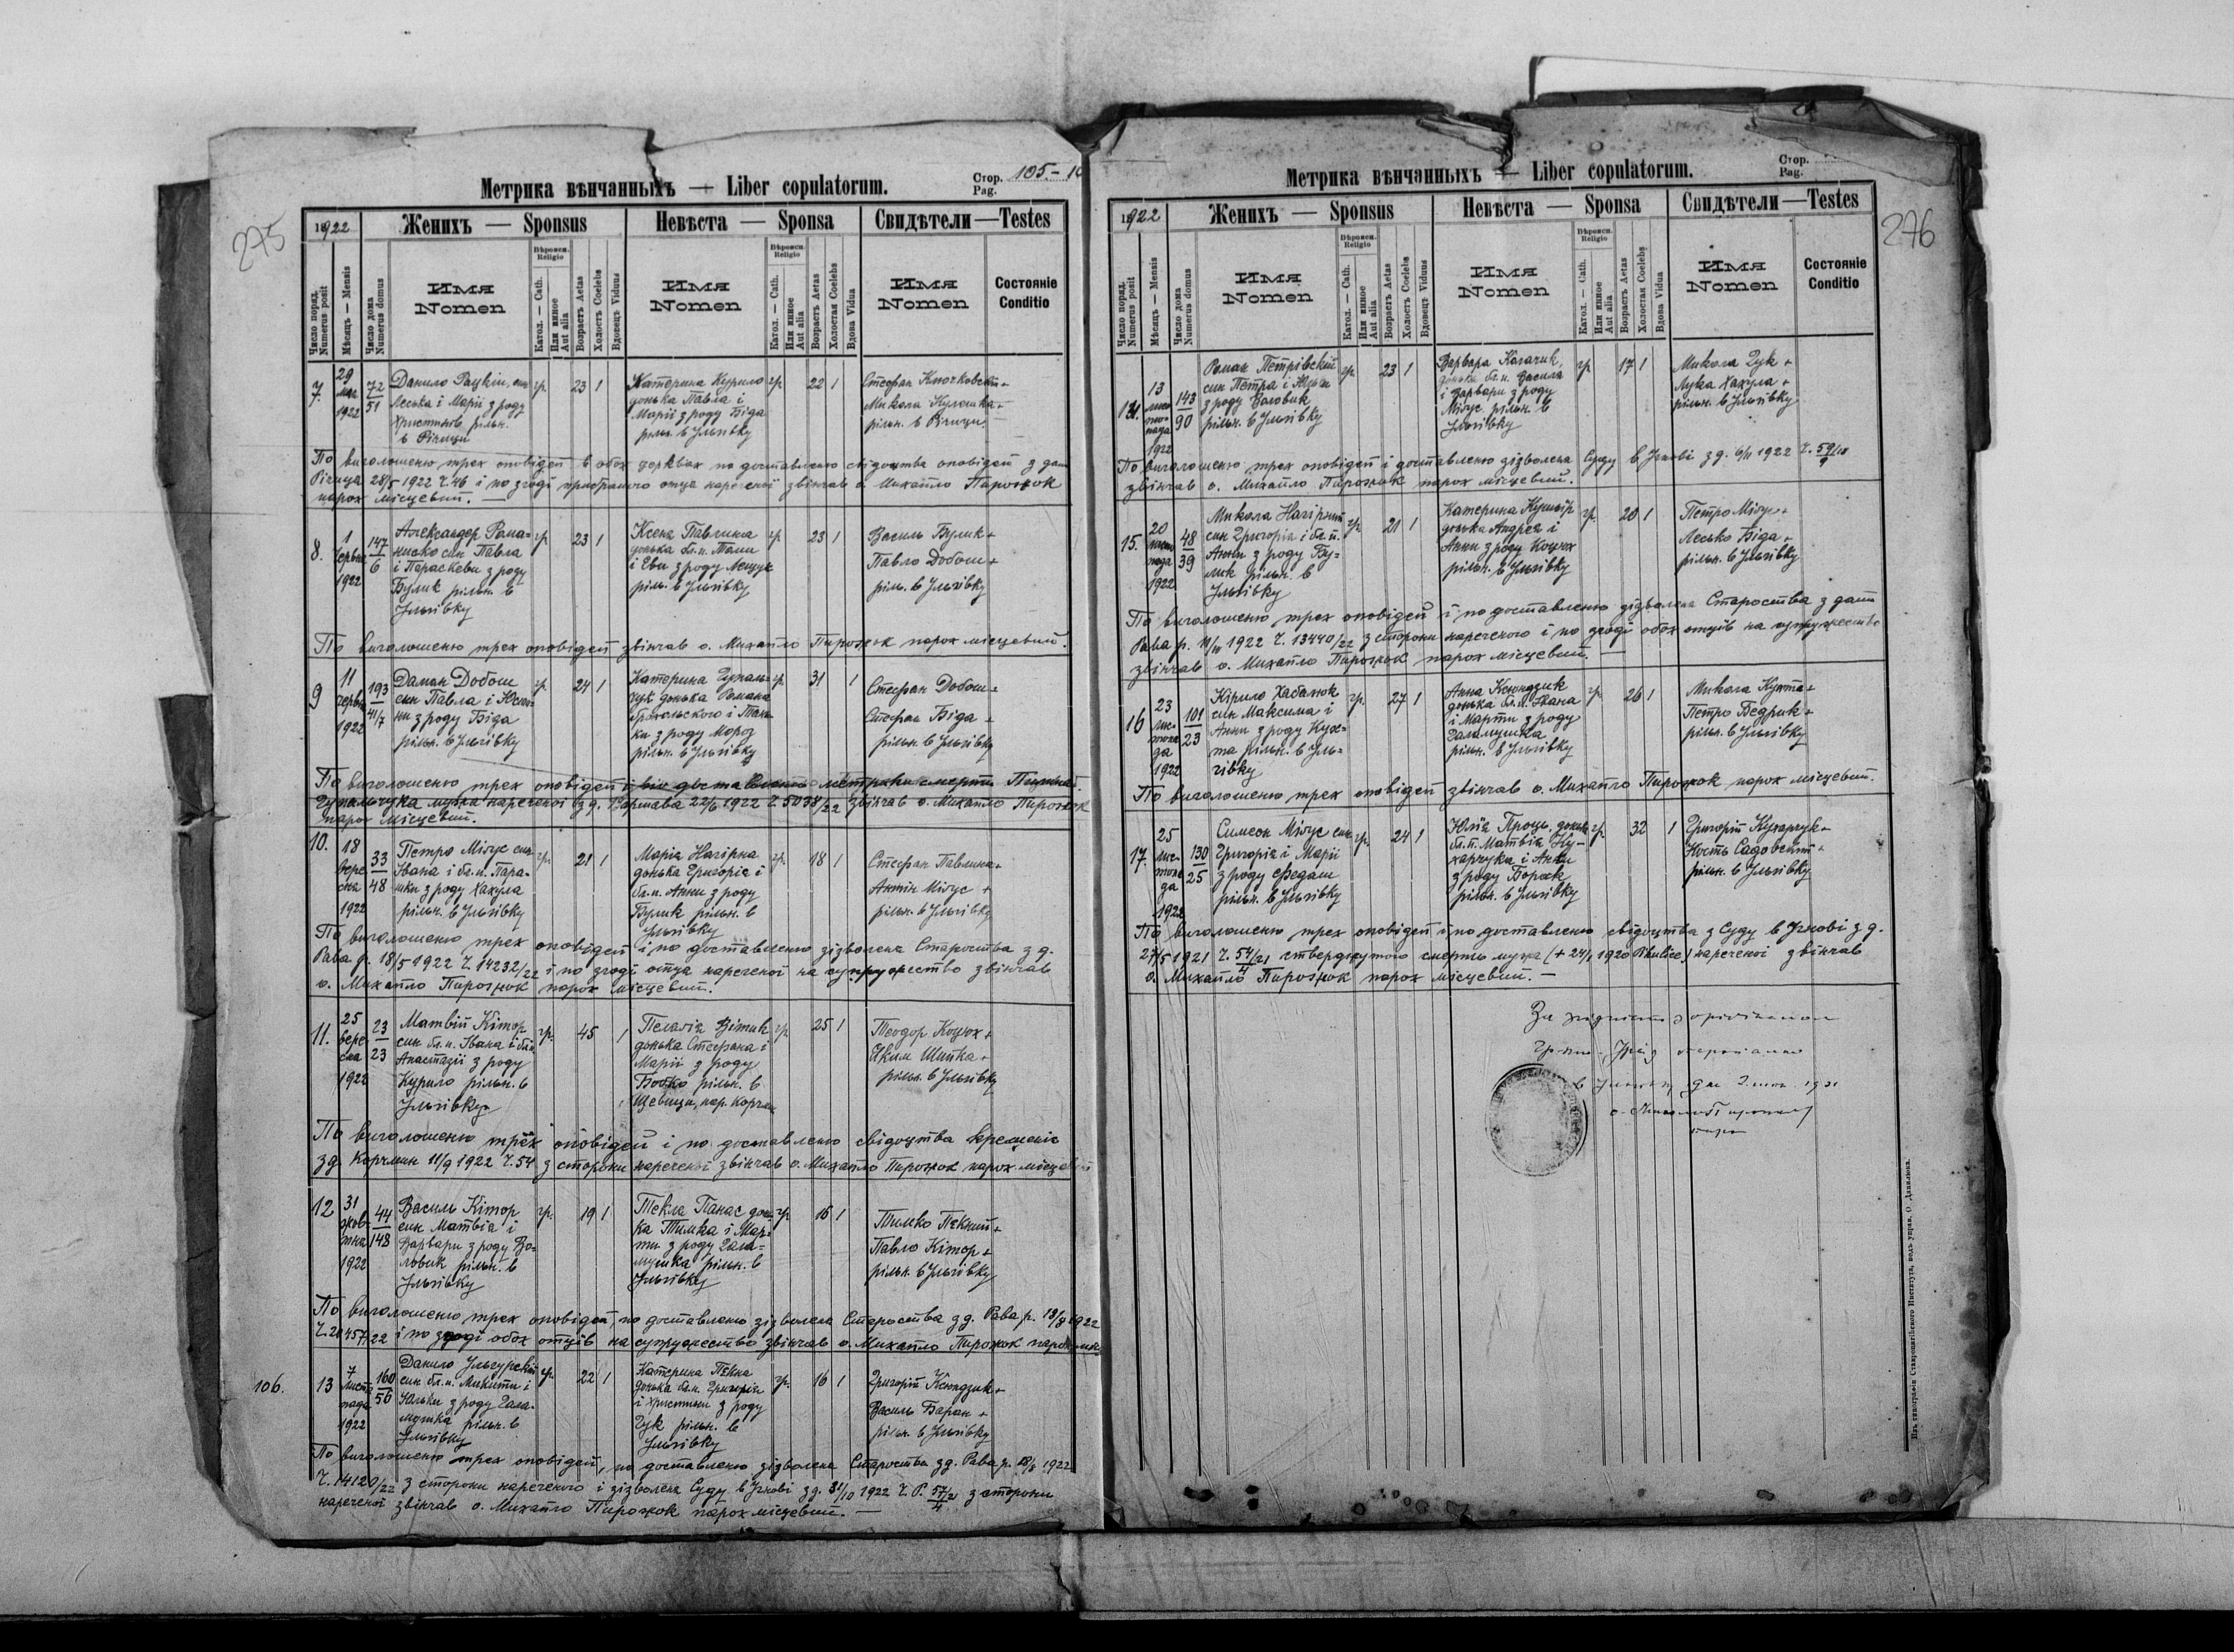 275
Стор. Pag. 105.-10
Метрика вѣнчанныхъ — Liber copulatorum.
1922 Женихъ — Sponsus Невѣста — Sponsa Свидѣтели — Testes
Число поряд. Numerus posit
Мѣсяцъ — Mensis
Число дома Numerus domus
Имя Nomen
Вѣроисп. Religio
Катол. — Cath.
Или инное Aut alia
Возрастъ Aetas
Холостъ Coelebs
Вдовецъ Viduus
Имя Nomen
Вѣроисп. Religio
Катол. — Cath.
Или инное Aut alia
Возрастъ Aetas
Холостая Coelebs
Вдова Vidua
Имя Nomen
Состояніе Conditio
7. 29 мая 1922 72/51
Данило Рацкін, син
Леська і Марії з роду
Христинів рільн.
в Річици
гр. 23 1
Катерина Курило
донька Павла і
Марії з роду Біда
рільн. в Ульгівку
гр 22 1
Стефан Ключковський +
Микола Кулешка +
рільн. в Річици
По виголошеню трех оповідей в обох церквах по доставленю свідоцтва оповідей з дати
Річиця 28/5 1922 Ч. 46 і по згоді прибраного отця нареченої звінчав о. Михайло Пирожок
парох місцевий. —
8. 1 червня 1922 147/6
Александер Рома-
нисько син Павла
і Параскеви з роду
Булик рільн. в
Ульгівку
гр 23 1
Ксеня Павлина
донька бл.п. Томи
і Еви з роду Мещук
ріль. в Ульгівку
гр 23 1
Василь Булик +
Павло Добош +
ріль. в Ульгівку
По виголошеню трех оповідей звінчав о. Михайло Пирожок парох місцевий.
9 11 червня 1922 193 41/7
Даман Добош
син Павла і Юстин-
ни з роду Біда
рільн. в Ульгівку
гр. 24 1
Катерина Гупаль-
чук донька Романа
Ярогольського і Тань-
ки з роду Мороз
рільн. в Ульгівку
гр. 31 1
Стефан Добош +
Стефан Біда +
рільн. в Ульгівку
По виголошеню трех оповідей і по доставленю метрики смерти
Гупальчука мужа нареченої з д. Варшава 22/6 1922 Ч. 5038/22 звінчав о. Михайло Пирожок
парох місцевий.
10. 18 вересня 1922 33/48
Петро Мілус син
Івана і бл.п. Пара-
ньки з роду Хахула
рільн. в Ульгівку
гр. 21 1
Марія Нагірна
донька Григорія і
бл.п. Анни з роду
Булик рільн. в
Ульгівку
гр. 18 1
Стефан Павлина +
Антін Мілус +
рільн. в Ульгівку
По виголошеню трех оповідей і по доставленю зізволеня Староства з д.
Рава р. 18/5 1922 Ч. 14232/22 і по згоді отця нареченої на супружество звінчав
о. Михайло Пирожок парох місцевий.
11. 25 вересня 1922 23/23
Матвій Кітор
син бл.п. Івана і бл.п.
Анастазії з роду
Курило рільн. в
Ульгівку
гр. 45 1
Пелагія Вітик
донька Стефана і
Марії з роду
Бойко рільн. в
Щевици, пар. Корчмин
гр. 25 1
Теодор Коцюх +
Яким Шипка +
рільн. в Ульгівку
По виголошеню трех оповідей і по доставленю свідоцтва крещенія
з д. Корчмин 11/9 1922 Ч. 54 з сторони нареченої звінчав о. Михайло Пирожок парох місцевий
12 31 жовтня 1922 44/148
Василь Кітор
син Матвія і
Варвари з роду Во-
ловик рільн. в
Ульгівку
гр. 19 1
Текля Панас донь-
ка Тимка і Мар-
ти з роду Гала-
мушка рільн. в
Ульгівку
гр 16 1
Тимко Пєкний +
Павло Кітор +
рільн. в Ульгівку
По виголошеню трех оповідей, по доставленю зізволеня Староства з д. Рава р. 19/8 1922
Ч. 20457/22 і по згоді обох отців на супружество звінчав о. Михайло Пирожок парох
106.
13 7 листопада 1922 160/56
Данило Ульгурский
син бл.п. Микити і
Юльки з роду Гала-
мушка рільн. в
Ульгівку
гр. 22 1
Катерина Пєкна
донька бл.п. Григорія
і Христини з роду
Гук рільн. в
Ульгівку
гр. 16 1
Григорій Ксьондзик +
Василь Баран +
рільн. в Ульгівку
По виголошеню трех оповідей, по доставленю зізволеня Староства з д. Рава р. 18/8 1922
Ч. 14120/22 з сторони нареченого і зізволеня Суду в Угнові з д. 31/10 1922 Ч. Р. 57/21 4 з сторони
нареченої звінчав о. Михайло Пирожок парох місцевий. —
276
Стор. Pag.
Метрика вѣнчанныхъ — Liber copulatorum.
1922 Женихъ — Sponsus Невѣста — Sponsa Свидѣтели — Testes
Число поряд. Numerus posit
Мѣсяцъ — Mensis
Число дома Numerus domus
Имя Nomen
Вѣроисп. Religio
Катол. — Cath.
Или инное Aut alia
Возрастъ Aetas
Холостъ Coelebs
Вдовецъ Viduus
Имя Nomen
Вѣроисп. Religio
Катол. — Cath.
Или инное Aut alia
Возрастъ Aetas
Холостая Coelebs
Вдова Vidua
Имя Nomen
Состояніе Conditio
14. 13 листопада 1922 143/90
Роман Петрівский
син Петра і
з роду Воловик
рільн. в Ульгівку
гр 23 1
Варвара Казачик,
донька бл.п. Василя
і Варвари з роду
Мілус рільн. в
Ульгівку
гр 17 1
Микола Гук +
Лука Хахула +
рільн. в Ульгівку
По виголошеню трех оповідей і доставленю зізволеня Суду в Угнові з д. 6/11 1922 Ч. 59/18 9
звінчав о. Михайло Пирожок парох місцевий.
15. 20 листопада 1922 48/39
Микола Нагірний
син Григорія і бл.п.
Анни з роду Бу-
лик рільн. в
Ульгівку
гр. 21 1
Катерина Кушнір
донька Андрея і
Анни з роду Коцюх
рільн. в Ульгівку
гр. 20 1
Петро Мілус +
Лесько Біда +
рільн. в Ульгівку
По виголошеню трех оповідей і по доставленю дозволеня Староства з дати
Рава р. 1922 Ч. 13440/22 з сторони нареченого і по згоді обох отців на супружество
звінчав о. Михайло Пирожок парох місцевий. —
16 23 листопада 1922 101/23
Кірило Хабанюк
син Максима і
Анни з роду Кух-
та рільн. в Уль-
гівку
гр. 27 1
Анна Ксьондзик
донька бл.п. Івана
і Марти з роду
Галамушка
рільн. в Ульгівку
гр. 26 1
Микола Кухта +
Петро Бедрик +
рільн. в Ульгівку
По виголошеню трех оповідей звінчав о. Михайло Пирожок парох місцевий.
17. 25 листопада 1922 130/25
Симеон Мілус син
Григорія і Марії
з роду Федаш
рільн. в Ульгівку
гр. 24 1
Юлія Проць, донька
бл.п. Матвія Ку-
харчука і Анни
з роду Борсук
рільн. в Ульгівку
гр. 32 1
Григорій Кухарчук +
Кость Садовский +
рільн. в Ульгівку
По виголошеню трех оповідей і по доставленю свідоцтва з Суду в Угнові з д.
27/5 1921 Ч. 54/21 4 ствердженого смерть мужа (+ 24/1 1920 Pikulice) нареченої звінчав
о. Михайло Пирожок парох місцевий. —
За згідність з оригіналом
Изъ типографіи Ставропигійского Института, подъ управ. О. Данилюка.